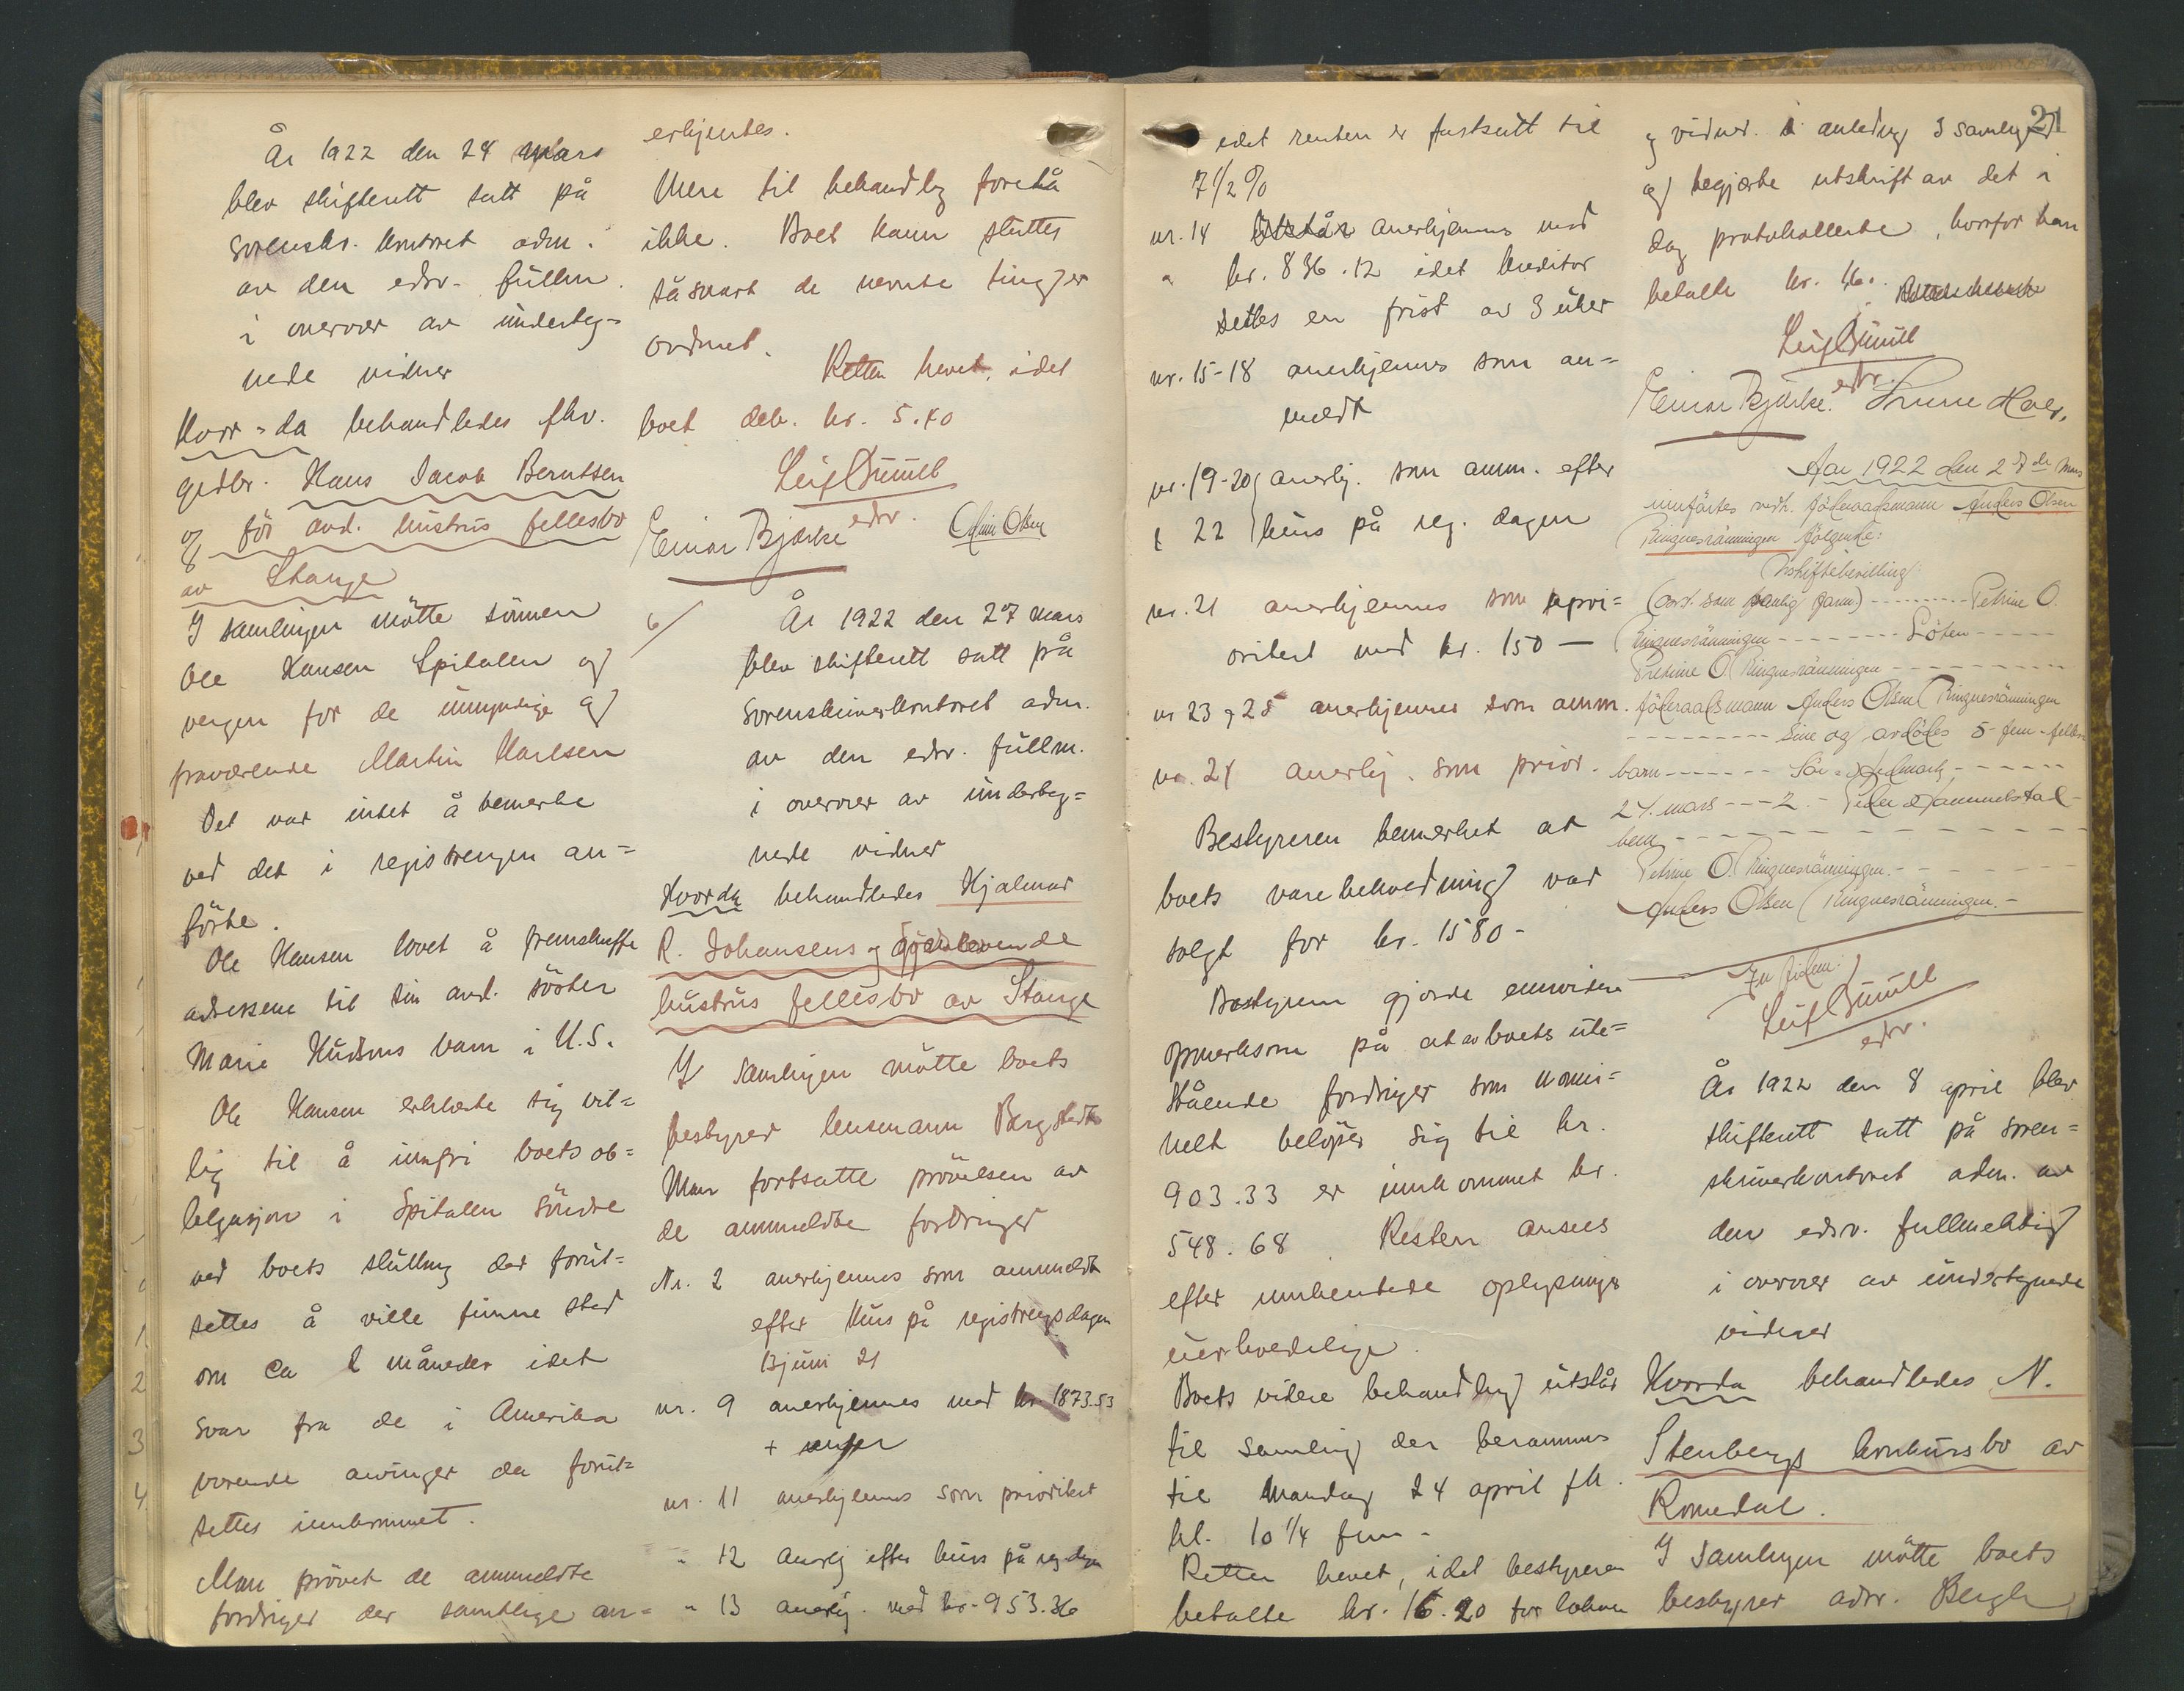 År 1922 den 24 mars
blev skifterett satt på
sorenskr. kontoret adm.
av den edsv. fullm.
i overvær av underteg=
nede vidner
Hvor=da behandledes fhv.
gedbr. Hans Jacob Berntsen
og för avd. hustrus fellesbo
av Stange
I samlingen mötte sönnen
Ole Hansen Spitalen og
vergen for de umyndige og
fraværende Martin Karlsen
Det var intet å bemerke
ved det i registreringen an=
förte.
Ole Hansen lovet å fremskaffe
adressene til sin avd. söster
Marie Hudsons barn i U.S.
Ole Hansen erklærte sig vil=
lig til å innfri boets ob=
ligasjon i Spitalen söndre
ved boets slutning der forut=
settes å ville finne sted
om ca 2 måneder idet
svar fra de i Amerika
værende arvinger da forut=
settes innkommet.
Man prövet de anmeldte
fordringer der samtlige an=
erkjentes.
Mere til behandling forelå
ikke. Boet kann sluttes
såsnart de nevnte ting er
ordnet.
Retten hevet, idet
boet deb. kr. 5.40
Leif Gmüll
edsv.
Einar Bjørke Olsen
6/ År 1922 den 27 mars
blev skifterett satt på
sorenskriverkontoret adm.
av den edsv. fullm.
i overvær av underteg=
nede vidner
Hvorda behandledes Hjalmar
R. Johansens og gjenlevende
hustrus fellesbo av Stange
I samlingen mötte boets
bestyrer lensmann Bergstedt
Man fortsatte prövelsen av
de anmeldte fordringer
Nr. 2 anerkjennes som anmeldt
efter kurs på registreringsdagen
13 juni 21
nr. 9 anerkjennes med kr 1873.53
+ renter
nr. 11 anerkjennes som prioritert
" 12 anerkj efter kurs på reg dagen
" 13 anerkj. med kr. 953.36
idet renten er fastsatt til
7 1/2 %
nr. 14 anerkjennes med
kr. 836.12 idet kreditor
settes en frist av 3 uker
nr. 15-18 anerkjennes som an=
meldt
nr. 19-20 anerkj. som anm. efter
22 kurs på reg. dagen
nr. 21 anerkjennes som upri=
oritert med kr. 150 —
nr 23 og 25 anerkjennes som anm.
nr. 24 anerkj. som prior.
Bestyreren bemerket at
boets varebeholdning var
solgt for kr. 1580 -
Bestyreren gjorde ennvidere
opmerksom på at av boets ute=
stående fordringer som nomi=
nelt belöper sig til kr.
903.33 er innkommet kr.
548.68. Resten ansees
efter innhentede oplysninger
uerholdelige.
Boets videre behandling utstår
til samling der berammes
til mandag 24 april fk.
kl. 10 1/4 fm -
Retten hevet, idet bestyreren
betalte kr. 16.20 for lokale
21
og vidner. i anledng 3 samlinger
og begjærte utskrift av det i
dag protokollerte, hvorfor han
betalte kr. 16.
Leif Gmüll
edsv.
Einar Bjørke.
Aar 1922 den 27de mars
innförtes vedk. föderaadsmann Anders Olsen
Ringnesrönningen fölgende:
Uskiftebevilling:
(avs. som vanlig form) - - - - Petrine O.
Ringnesrönningen - - - - Löten - - - -
Petrine O. Ringnesrönningen - - - -
föderaadsmann Anders Olsen Ringnesrönningen
- - - - sine og avdödes 5 - fem - felles
barn - - - - Sör-Hedmark - - - -
27. mars - - - 2. - Peder Gammelstad-
ben - - - -
Petrine O. Ringnesrönningen. - - - -
Anders Olsen Ringnesrönningen. -
In fidem:
Leif Gmüll
edsv.
År 1922 den 8 april blev
skifterett satt på soren=
skriverkontoret adm. av
den edsv. fullmektig
i overvær av undertegnede
vidner
Hvorda behandledes N.
Stenbergs konkursbo av
Romedal.
I samlingen mötte boets
bestyrer adv. Bergh